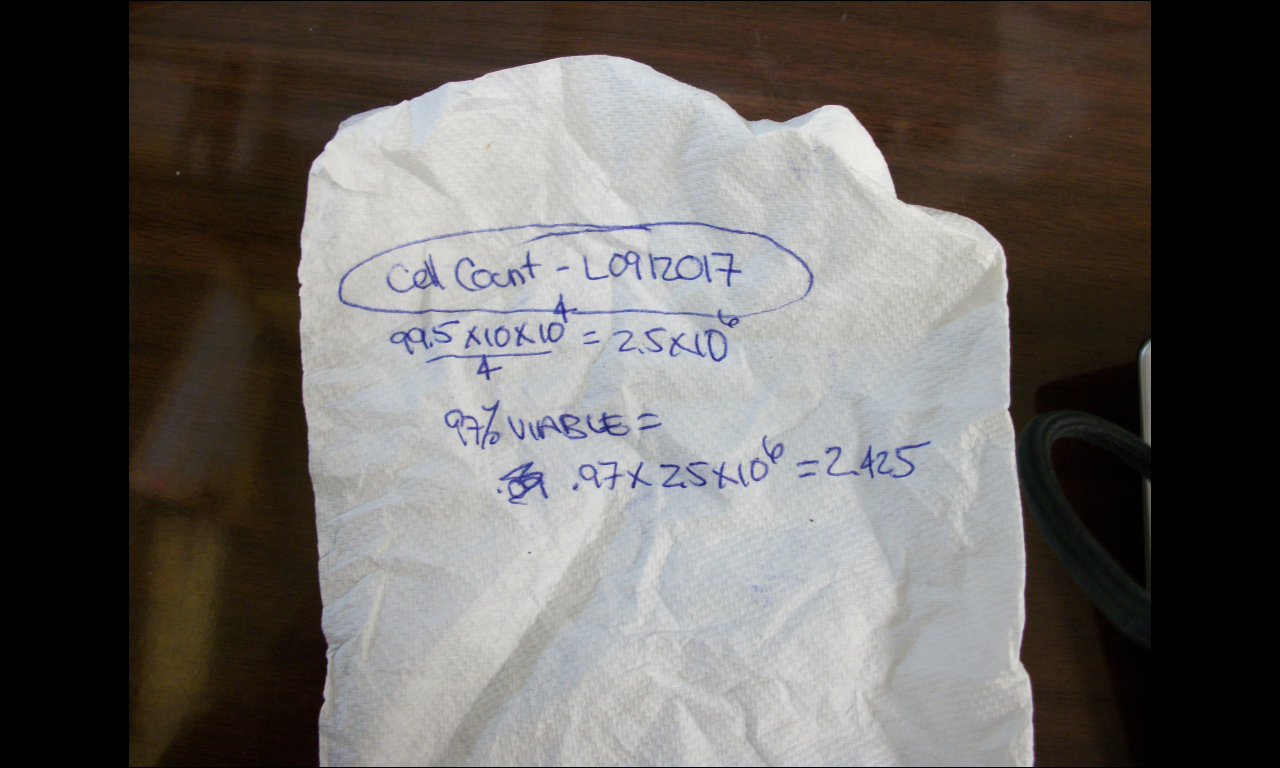 Cell Count - L0912017
99.5 x 10 x 10^4 = 2.5 x 10^6
4
97% VIABLE =
.97 x 2.5 x 10^6 = 2.425